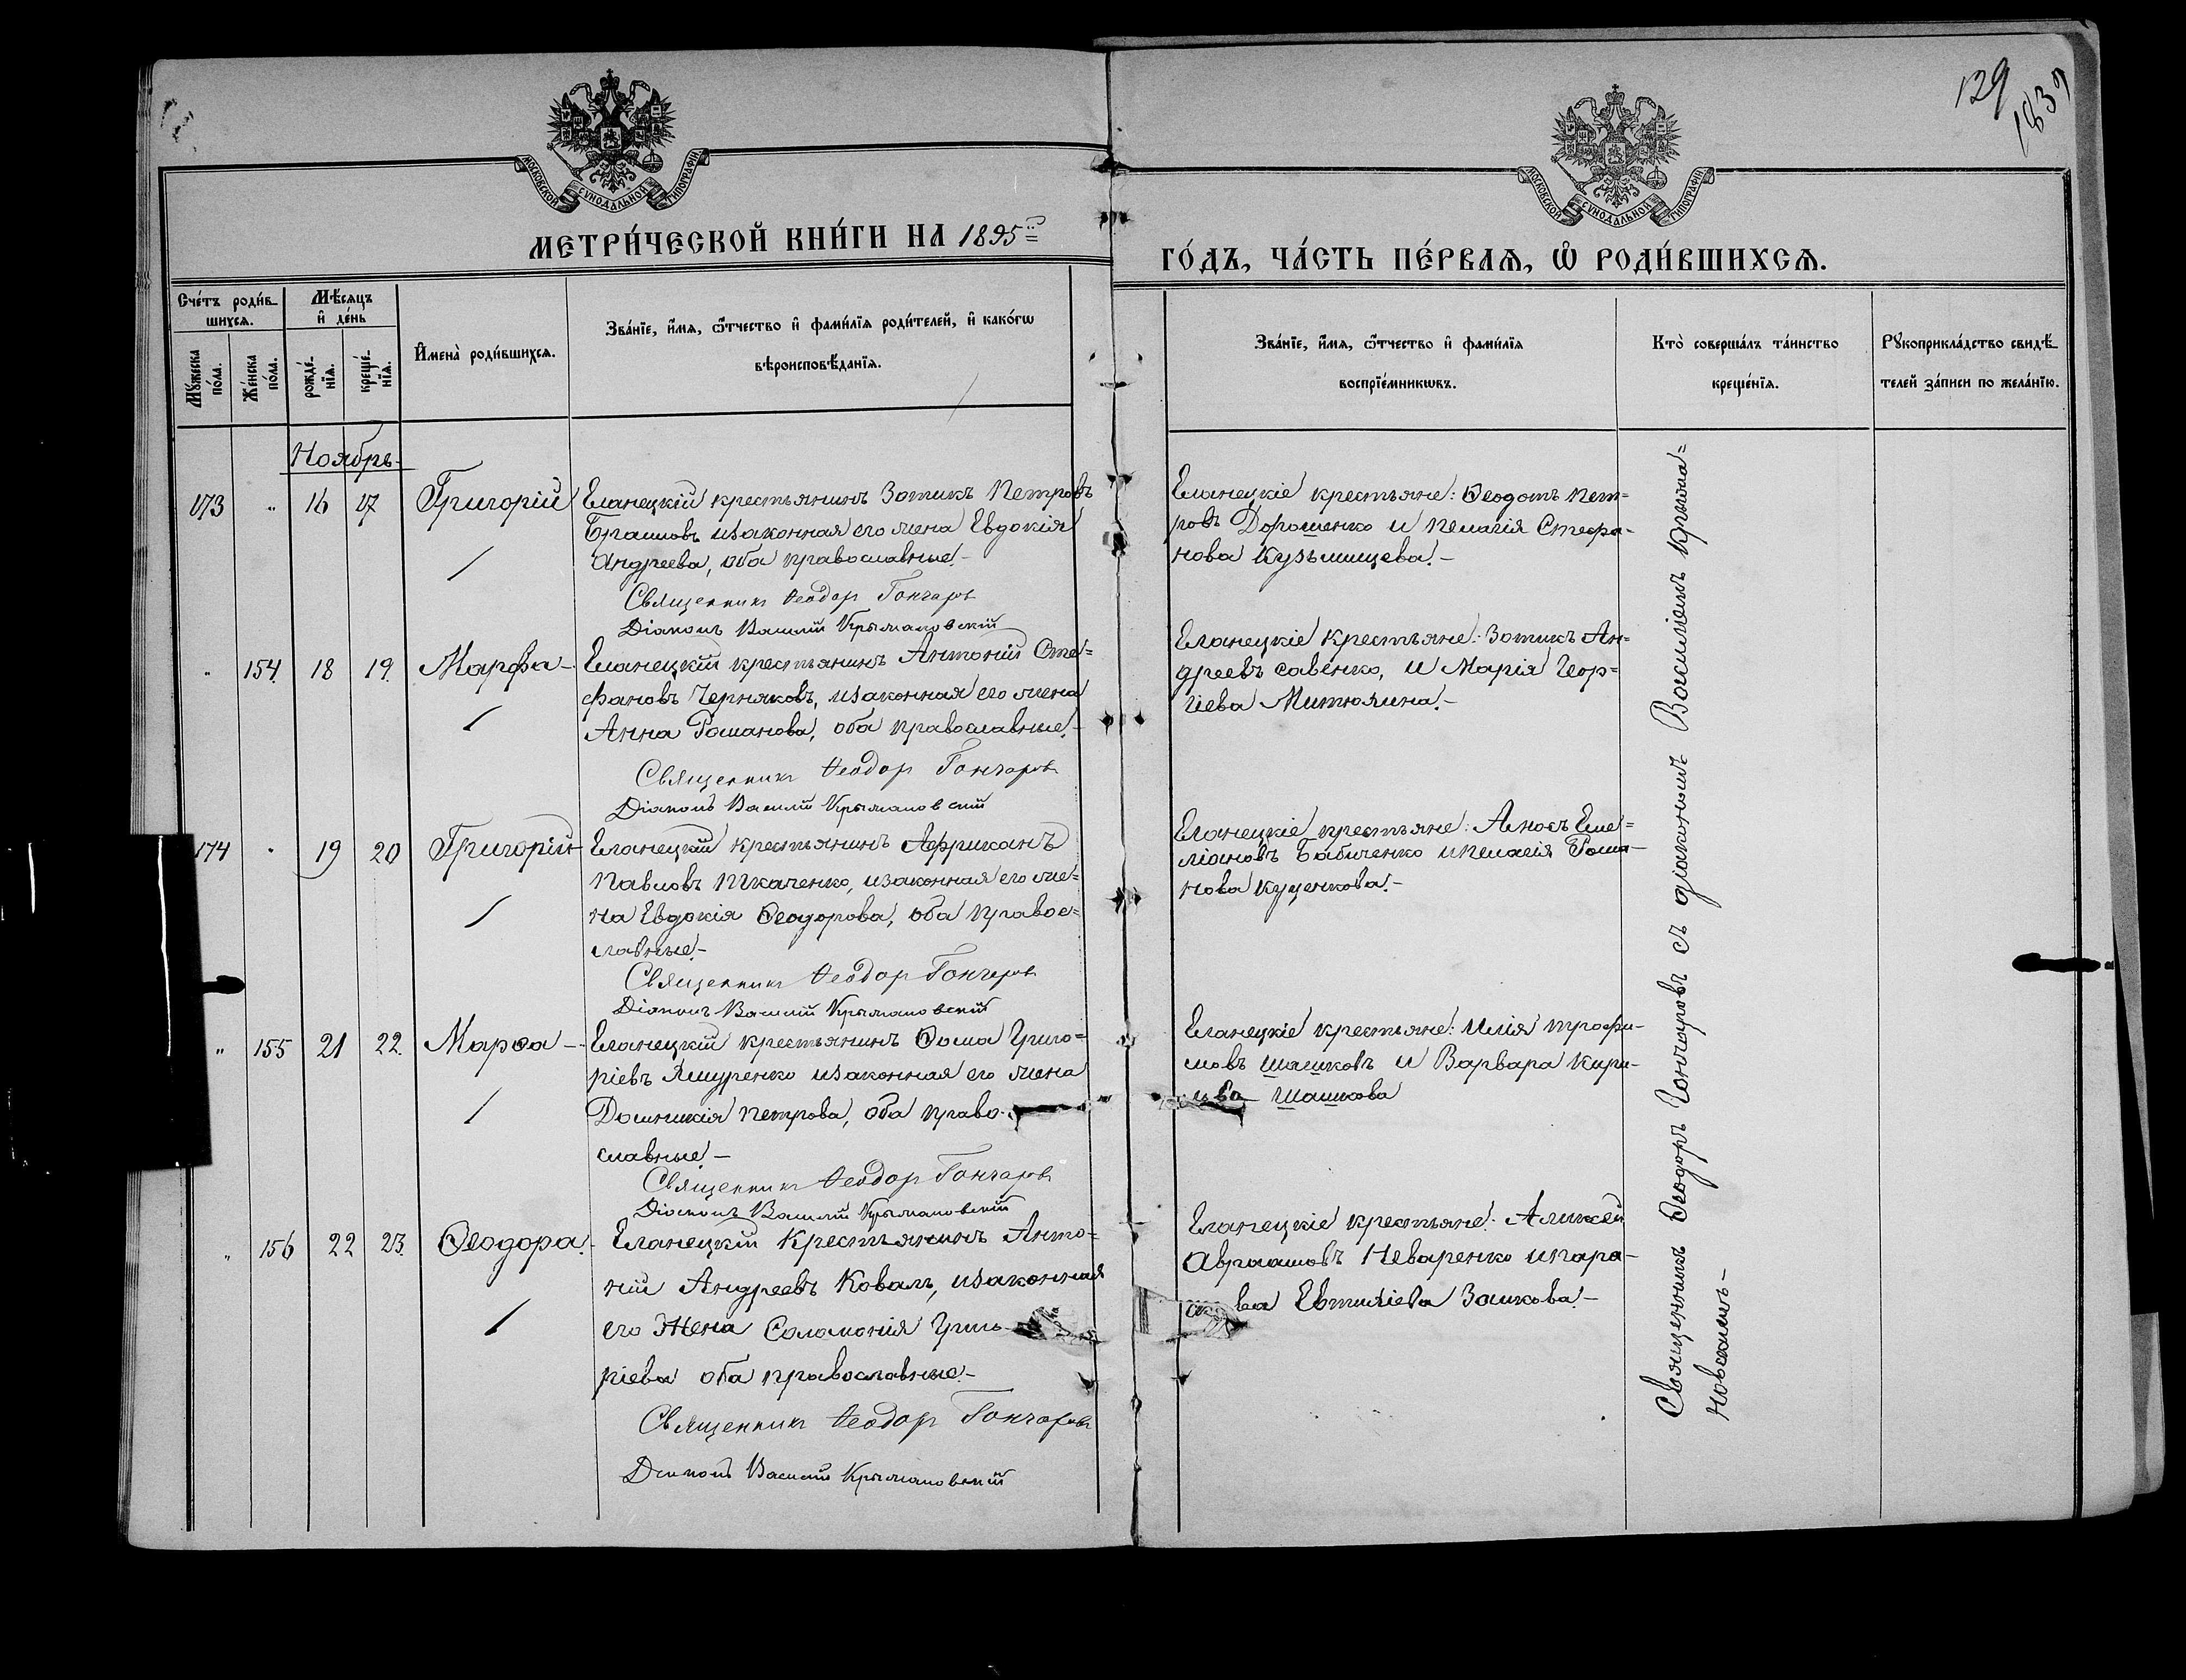 129
1839
МОСКОВСКОЙ СѴНОДАЛЬНОЙ ТИПОГРАФІИ
МОСКОВСКОЙ СѴНОДАЛЬНОЙ ТИПОГРАФІИ
МЕТРИ́ЧЕСКОЙ КНИ́ГИ НА 1895й
ГО́ДЪ, ЧА́СТЬ ПЕ́РВАѦ, Ѡ РОДИ́ВШИХСѦ.
Сче́тъ роди́в-
шихсѧ.
Мѣ́сѧцъ
и҆ де́нь
Мꙋ́жеска
по́ла.
Же́нска
по́ла.
рожде́-
нїѧ.
креще́-
нїѧ.
И҆мена̀ роди́вшихсѧ.
Зва́нїе, и҆́мѧ, ѻ҆́тчество и҆ фами́лїѧ роди́телей, и҆ како́гѡ
вѣроисповѣ́данїѧ.
Зва́нїе, и҆́мѧ, ѻ҆́тчество и҆ фами́лїѧ
воспрїе́мникѡвъ.
Кто̀ соверша́лъ та́инство
креще́нїѧ.
Рꙋкоприкла́дство свидѣ́-
телей за́писи по жела́нїю.
Ноябрь
173 " 16 17 Григорій Еланецкій крестьянинъ Зотикъ Петровъ
Браиловъ изаконная его жена Евдокія
Андреева, оба православные.-
Священникъ Ѳеодор Гончаров
Діаконъ Василій Крыжановскій
Еланецкіе крестьяне: Ѳеодотъ Пет=
ровъ Дорошенко и Пелагія Стефа-
нова Кузьмищева.-
" 154. 18 19. Марфа- Еланецкій крестьянинъ Антоній Сте=
фановъ Черняковъ, изаконная его жена
Анна Романова, оба православные.-
Священникъ Ѳеодор Гончаровъ
Діаконъ Василій Крыжановскій
Еланецкіе крестьяне: Зотикъ Ан=
дреевъ Савенко, и Марія Геор=
гіева Митюлина.-
174 " 19 20 Григорій Еланецкій крестьянинъ Африканъ
Павловъ Ткаченко, изаконная его же=
на Евдокія Ѳеодорова, оба правос=
лавные.-
Священникъ Ѳеодор Гончаров
Діаконъ Василій Крыжановскій
Еланецкіе крестьяне: Амосъ Еме=
ліановъ Бабиченко и Пелагія Рома-
нова Куценкова.-
" 155 21 22. Марѳа- Еланецкій крестьянинъ Ѳома Григо=
ріевъ Ящуренко изаконная его жена
Домникія Петрова, оба право-
славные.-
Священникъ Ѳеодор Гончаровъ
Діаконъ Василій Крыжановскій
Еланецкіе крестьяне: Илія Трофи-
мовъ Шашковъ и Варвара Кири-
лова Шашкова
" 156 22 23. Ѳеодора.- Еланецкій крестьянинъ Анто=
ній Андреевъ Коваль, изаконная
его жена Соломонія Григо-
ріева оба православные.-
Священникъ Ѳеодор Гончаровъ
Діаконъ Василій Крыжановскій
Еланецкіе крестьяне: Алиxсей
Авраамовъ Неваренко и Пара-
скева Евтихіева Зайкова.-
Священникъ Ѳеодоръ Гончаровъ съ діакономъ Василіемъ Крыжа=
новскимъ-